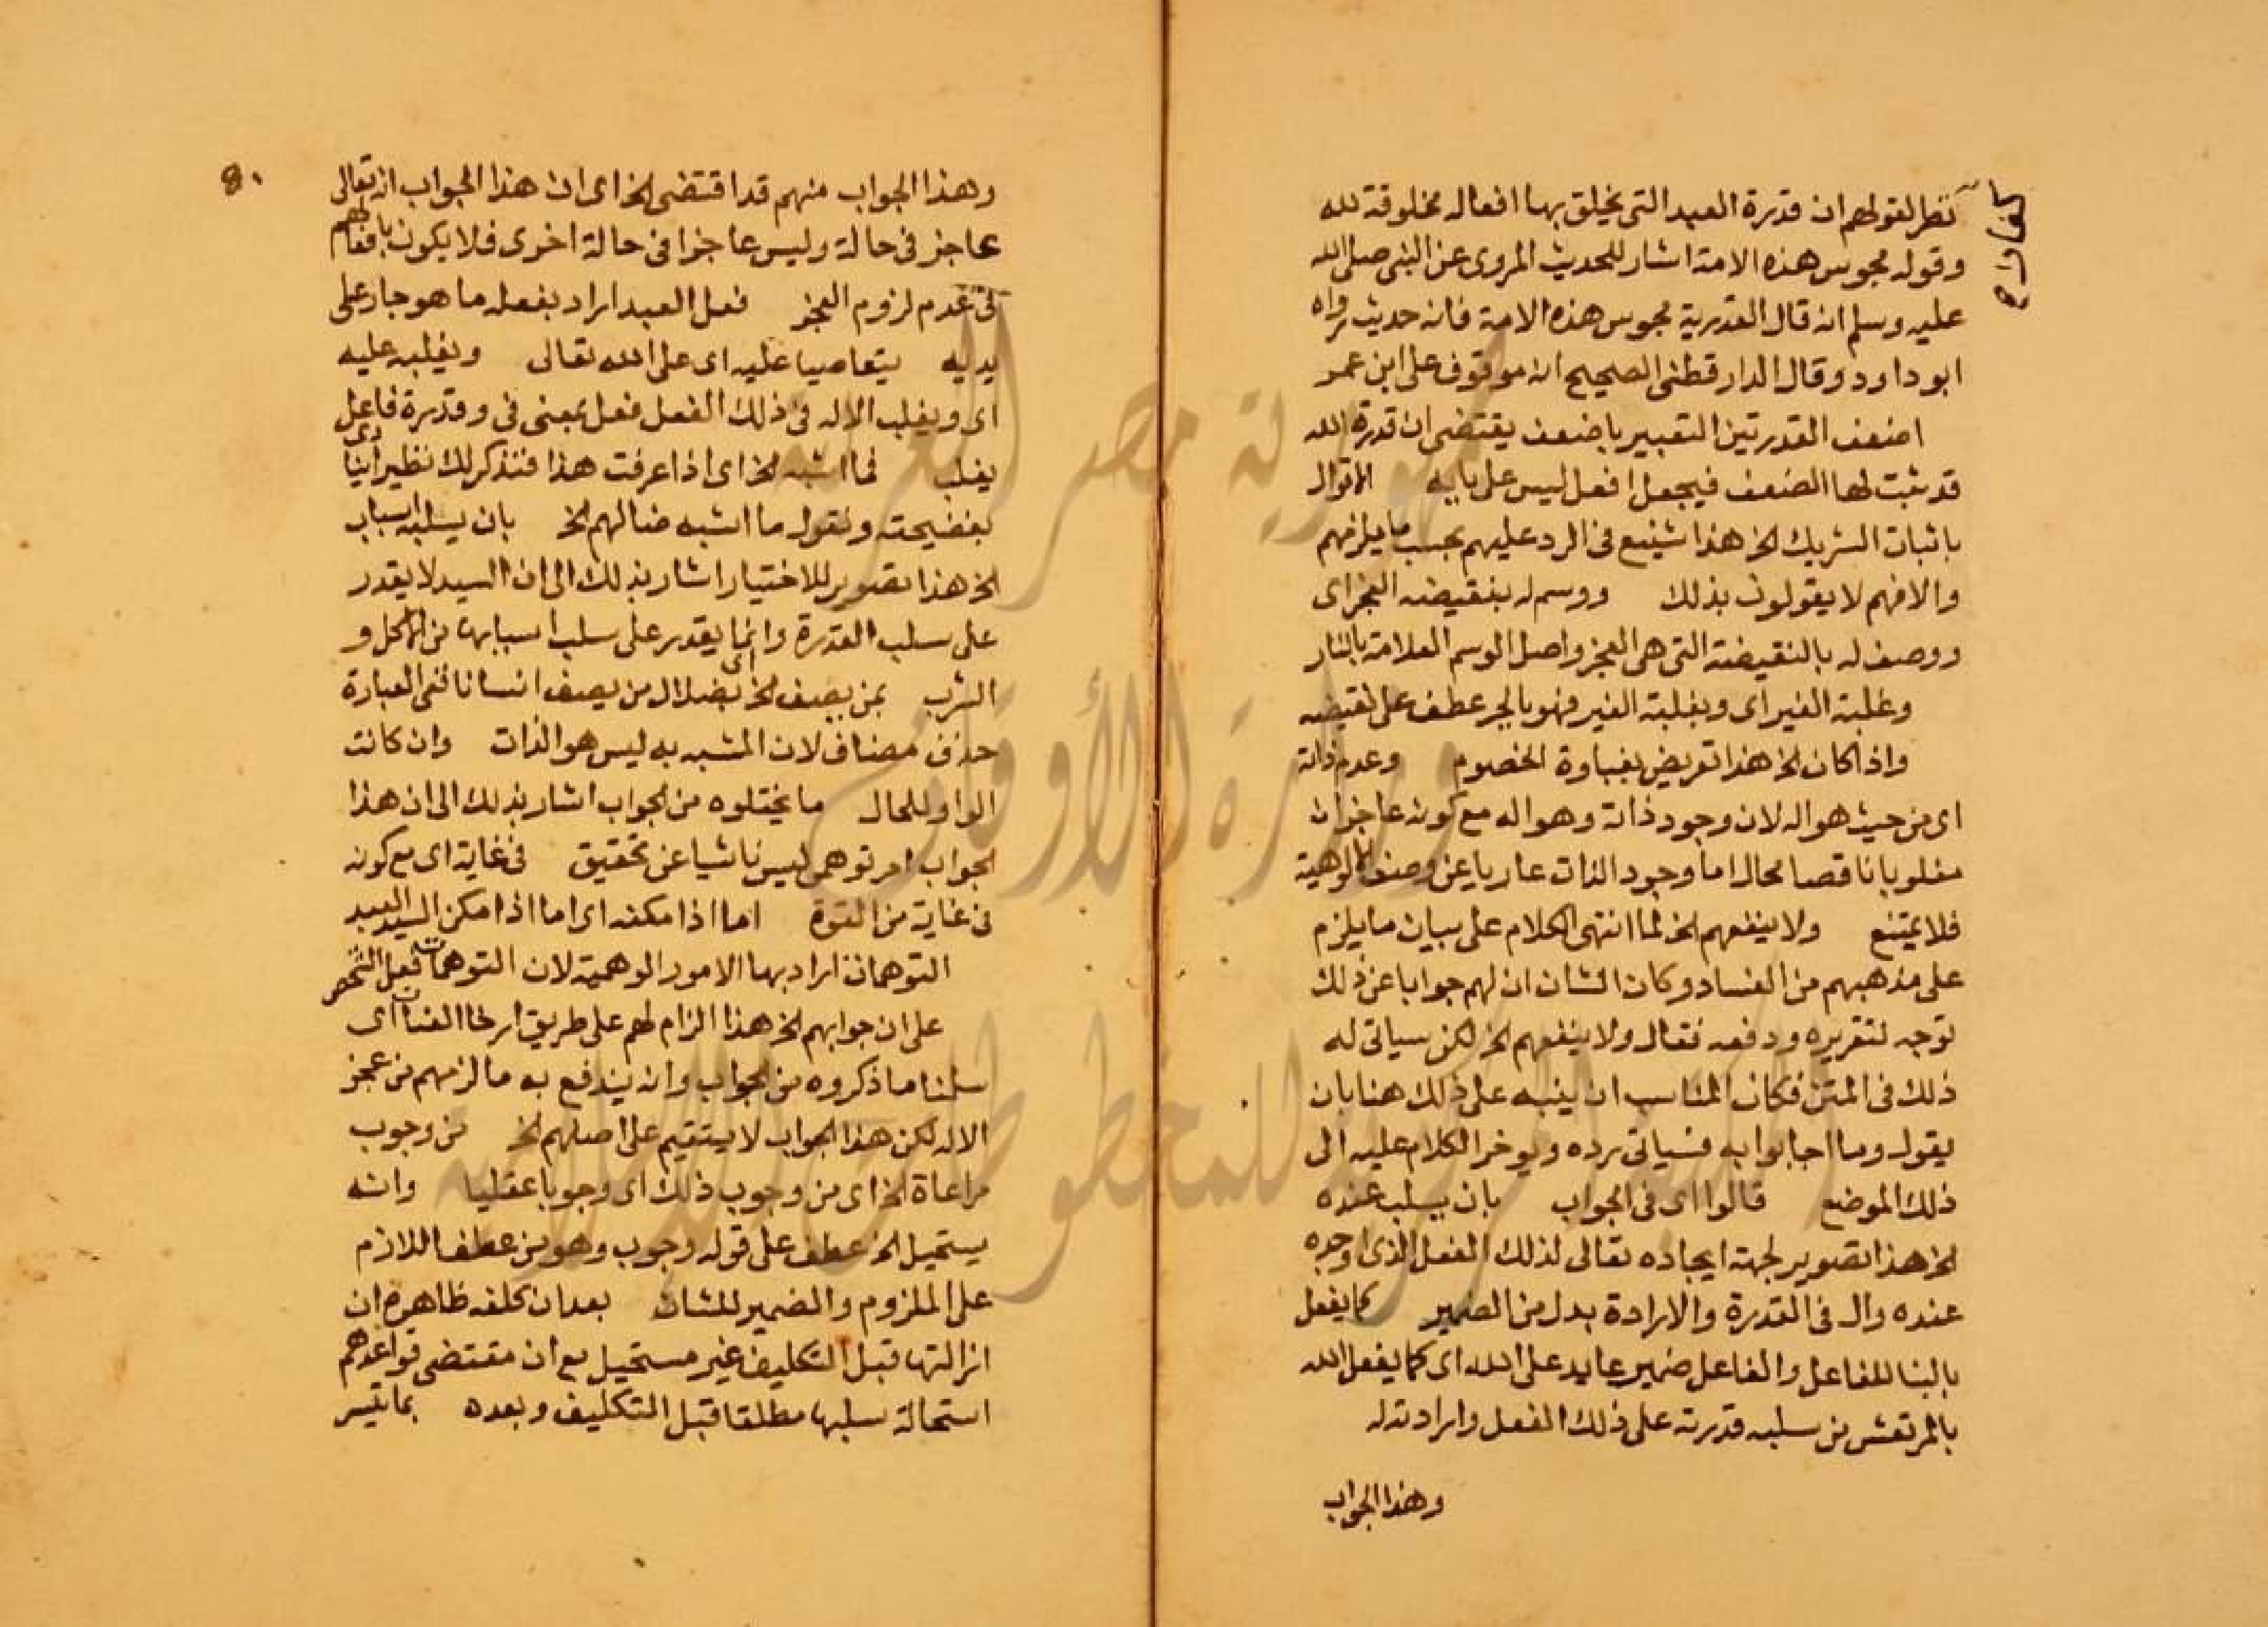 نظرا لقولهم ان قدرة العبد التي يخلق بها افعاله مخلوقة لله
وقوله مجوس هذه الامة اشار للحديث المروى عن النبى صلى الله
عليه وسلم انه قال القدرية مجوس هذه الامة فانه حديث رواه
ابو داود وقال الدارقطنى الصحيح انه موقوف على ابن عمر
اضعف القدرتين التعبير باضعف يقتضى ان قدرة الله
قد ثبت لها الضعف فيجعل افعل ليس على بابه
باثبات الشريك الخ هذا تشنيع فى الرد عليهم بحسب ما يلزمهم
والا فهم لا يقولون بذلك ووسمه بنقيضه العجز اى
ووصف له بالنقيضة التى هى العجز واصل الوسم العلامة بالنار
وغلبة الغير اى وبغلبة الغير فهو بالجر عطف على نقيضه
واذا كان الخ هذا تعريض بغباوة الخصوم وعدم ذاته
اى من حيث هو اله لان وجود ذاته وهو اله مع كونه عاجزا
مغلوبا ناقصا محال اما وجود الذات عاريا عن وصف الالوهية
فلا يمتنع ولا ينفعهم الخ لما انتهى الكلام على بيان ما يلزم
على مذهبهم من الفساد وكان الشان ان لهم جوابا عن ذلك
توجه لتقريره ودفعه فقال ولا ينفعهم الخ لكن سياتى له
ذلك فى المتن فكان المناسب ان ينبه على ذلك هنا بان
يقول وما اجابوا به فسياتى رده ويوخر الكلام عليه الى
ذلك الموضع قالوا اى فى الجواب بان يسلب عنده
الخ هذا تصوير لجهة ايجاده تعالى لذلك الفعل الذى اوجده
عنده وال فى القدرة والارادة بدل من الضمير كما يفعل
بالبنا للفاعل والفاعل ضمير عايد على الله اى كما يفعل الله
بالمرتعش من سلبه قدرته على ذلك الفعل وارادته له
وهذا الجواب
وهذا الجواب منهم قد اقتضى الخ اى ان هذا الجواب انه تعالى
عاجز فى حالة وليس عاجزا فى حالة اخرى فلا يكون
فى عدم لزوم العجز فعل العبد اراد بفعله ما هو جار على
يديه يتعاصيا عليه اى على الله تعالى ويغلبه عليه
اى ويغلب الاله فى ذلك الفعل فعل بمعنى فى وقدرة فاعل
يغلب فما اشبه الخ اى اذا عرفت هذا فنذكر لك نظيرا
بفضيحته ونقول ما اشبه ضالهم الخ بان يسلبه اسباب
الخ هذا تصوير للاختيار اشار بذلك الى ان السيد لا يقدر
على سلب القدرة وانما يقدر على سلب اسبابها من الاكل و
الشرب بمن يصف الخ اى بضلال من يصف انسانا ففى العبارة
حذف مضاف لان المشبه به ليس هو الذات وان كانت
الواو للحال ما يختلوه من الجواب اشار بذلك الى ان هذا
الجواب امر توهمى ليس ناشيا عن تحقيق فى غاية اى مع كونه
فى غاية من القوة اما اذا مكنه اى اما اذا مكن السيد العبد
التوهمات اراد بها الامور الوهمية لان التوهمات فعل الشخص
على ان جوابهم الخ هذا الزام لهم على طريق ارخا العنان اى
سلمنا ما ذكروه من الجواب وانه يندفع به ما لزمهم من عجز
الاله لكن هذا الجواب لا يستقيم على اصلهم الخ من وجوب
مراعاة الخ اى من وجوب ذلك اى وجوبا عقليا وانه
يستحيل الخ عطف على قوله وجوب وهو من عطف اللازم
على الملزوم والضمير للشان بعد ان كلفه ظاهره ان
ازالتها قبل التكليف غير مستحيل مع ان مقتضى قواعدهم
استحالة سلبها مطلقا قبل التكليف وبعده بما تيسر